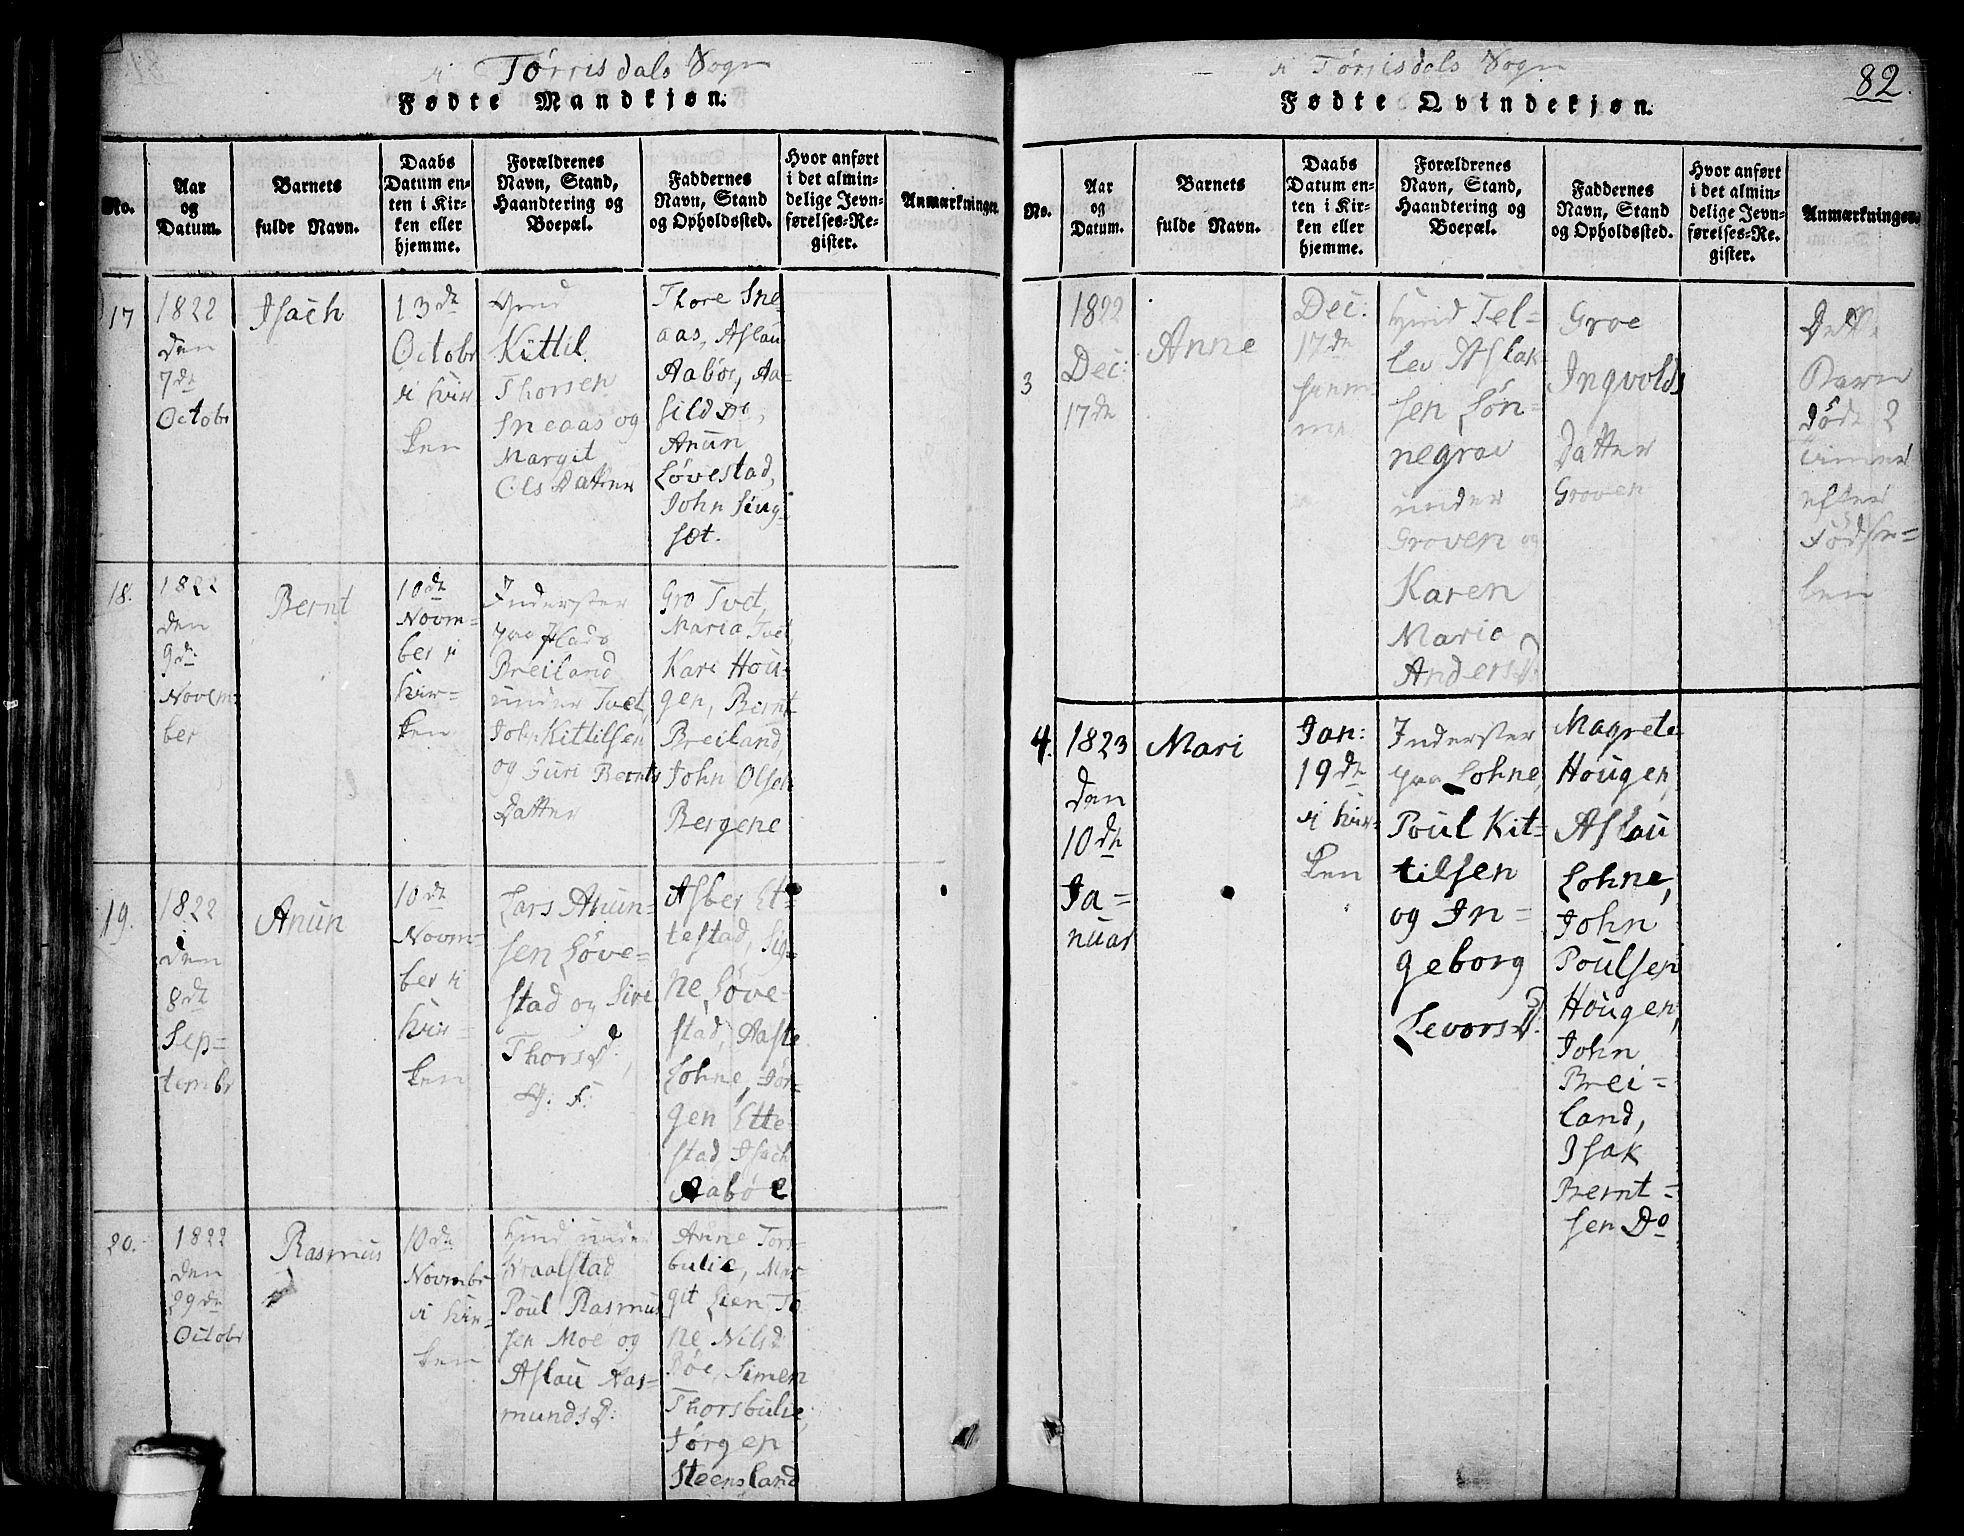 i Törrisdals Sogn
Fødte Mandkjøn.
No.
Aar
og
Datum.
Barnets
fulde Navn.
Daabs
Datum en-
ten i Kir-
ken eller
hjemme.
Forældrenes
Navn, Stand,
Haandtering og
Boepæl.
Faddernes
Navn, Stand
og Opholdssted.
Hvor anført
i det almin-
delige Jevn-
førelses-Re-
gister.
Anmærkninger.
17
1822
den
7de
Octobr
Isach
13de
Octobr
i Kir
ken
Kittil
Thorsen
Sneaas og
Margit
Ols Datter
Thore Sne
aas, Aslau
Aaböe, Aa-
sild Do,
Anun
Lövestad,
John Ling-
set.
18.
1822
den
9de
Novem-
ber
Bernt
10de
Novm-
ber i
Kir-
ken
Inderster
paa Plads
Breiland
under Tvet,
John Kittilsen
og Guri Bernts
Datter
Gro Tvet,
Maria Tvet
Kari Hou-
gen, Bernt
Breiland,
John Olsen
Bergene
19.
1822
den
8de
Sep-
tembr
Anun
10de
Novm-
ber i
Kir-
ken
Lars Anun-
sen Löve-
stad og Siri
Thors D.,
G. F.
Asber Et-
testad, Sig-
ne Löve-
stad, Aaste
Lohne, Jör-
gen Ette-
stad, Isach
Aaböe
20.
1822
den
29de
Octobr
Rasmus
10de
Novmbr
i Kir-
ken
Hmd under
Kraalstad
Poul Rasmus
sen Moe og
Aslau Aas-
munds D.
Anne Tors-
bulie, Mar-
git Lien, To
ne Nilsd
Böe, Simen
Thorsbulie,
Jörgen
Steensland
i Törrisdals Sogn
82.
Fødte Qvindekjøn.
No.
Aar
og
Datum.
Barnets
fulde Navn.
Daabs
Datum en-
ten i Kir-
ken eller
hjemme.
Forældrenes
Navn, Stand,
Haandtering og
Boepæl.
Faddernes
Navn, Stand
og Opholdssted.
Hvor anført
i det almin-
delige Jevn-
førelses-Re-
gister.
Anmærkninger.
3
1822
Dec:
17de
Anne
Dec:
17de
hjem-
me
Hmd Tel-
lev Aslak
sen Lön-
negrav
under
Groven og
Karen
Maria
Anders D.
Groe
Ingvolds
Datter
Groven
Dette
Barn
döde 2
Timer
efter
Födse-
len
4.
1823
den
10de
Ja-
nuar
Mari
Jan:
19de
i Kir-
ken
Inderster
paa Lohne,
Poul Kit-
tilsen
og In-
geborg
Levors D.
Magrete
Hougen,
Aslau
Lohne,
John
Poulsen
Hougen,
John
Brei-
land,
Isak
Bernt-
sen Do